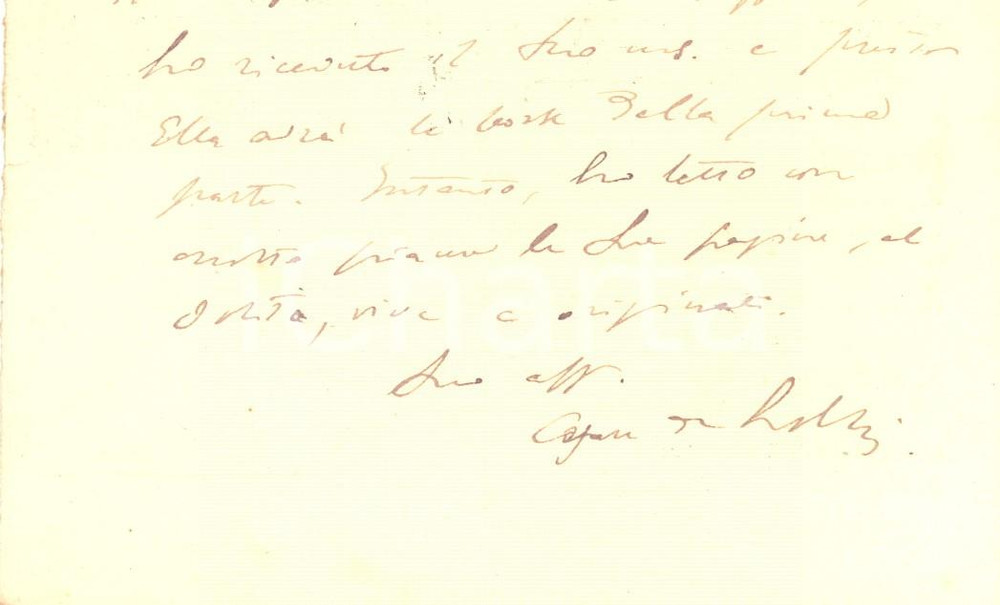 ho ricevuto il Suo ms. e presto
Ella avrà le bozze della prima
parte. Intanto, ho letto con
molto piacere le Sue pagine, al
solito, vive e originali.
Suo aff.
Cesare de Lollis